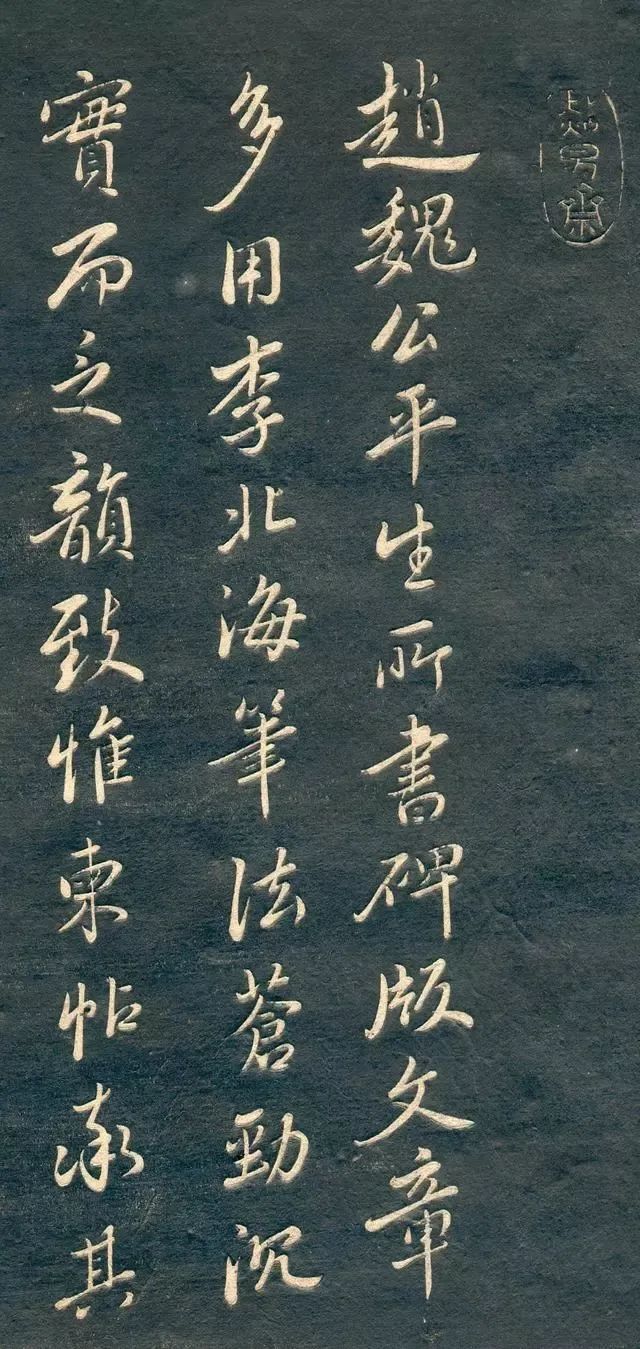 趙魏公平生所書碑版文章
多用李北海筆法蒼勁沉
實而乏韻致惟柬帖率其